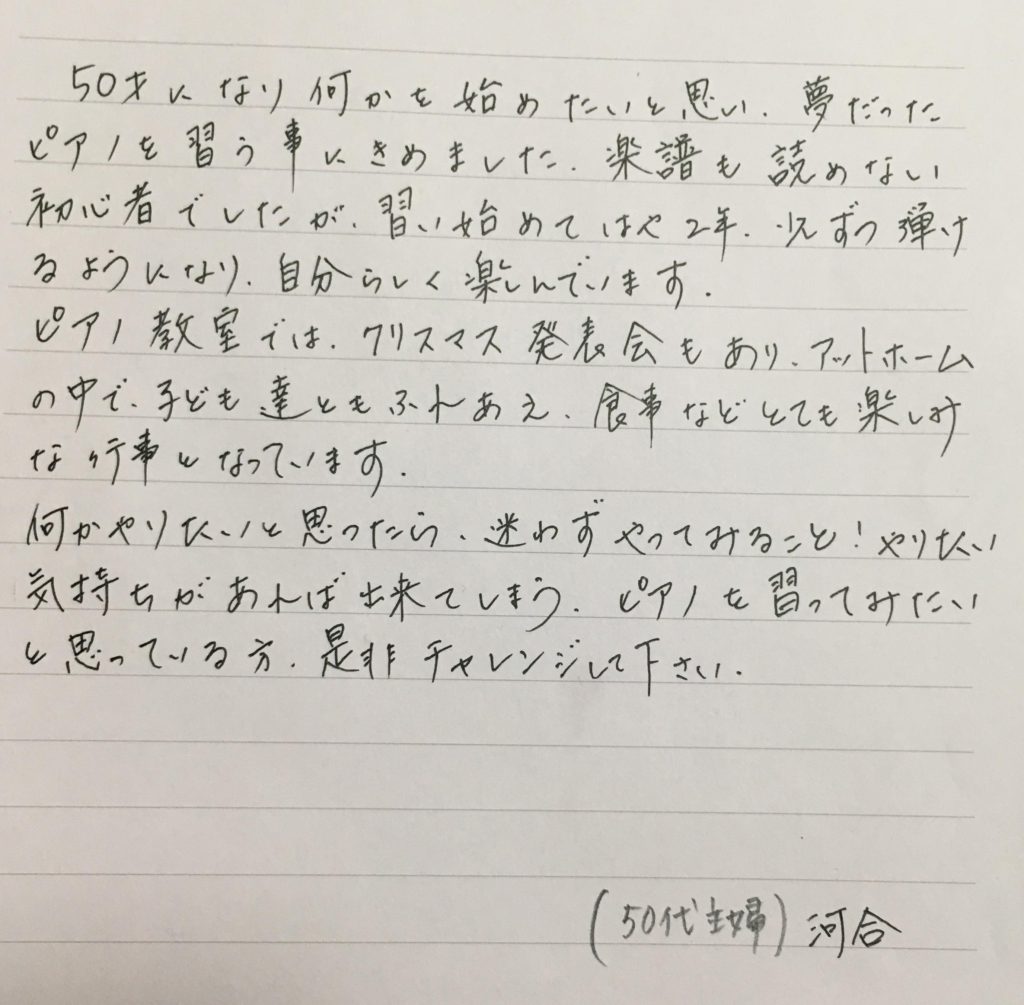 50才になり何かを始めたいと思い、夢だった
ピアノを習う事にきめました。楽譜も読めない
初心者でしたが、習い始めてはや2年、少しずつ弾け
るようになり、自分らしく楽しんでいます。
ピアノ教室では、クリスマス発表会もあり、アットホーム
の中で、子ども達ともふれあえ、食事などとても楽しみ
な行事となっています。
何かやりたいと思ったら、迷わずやってみること!やりたい
気持ちがあれば出来てしまう。ピアノを習ってみたい
と思っている方、是非チャレンジして下さい。
(50代主婦) 河合